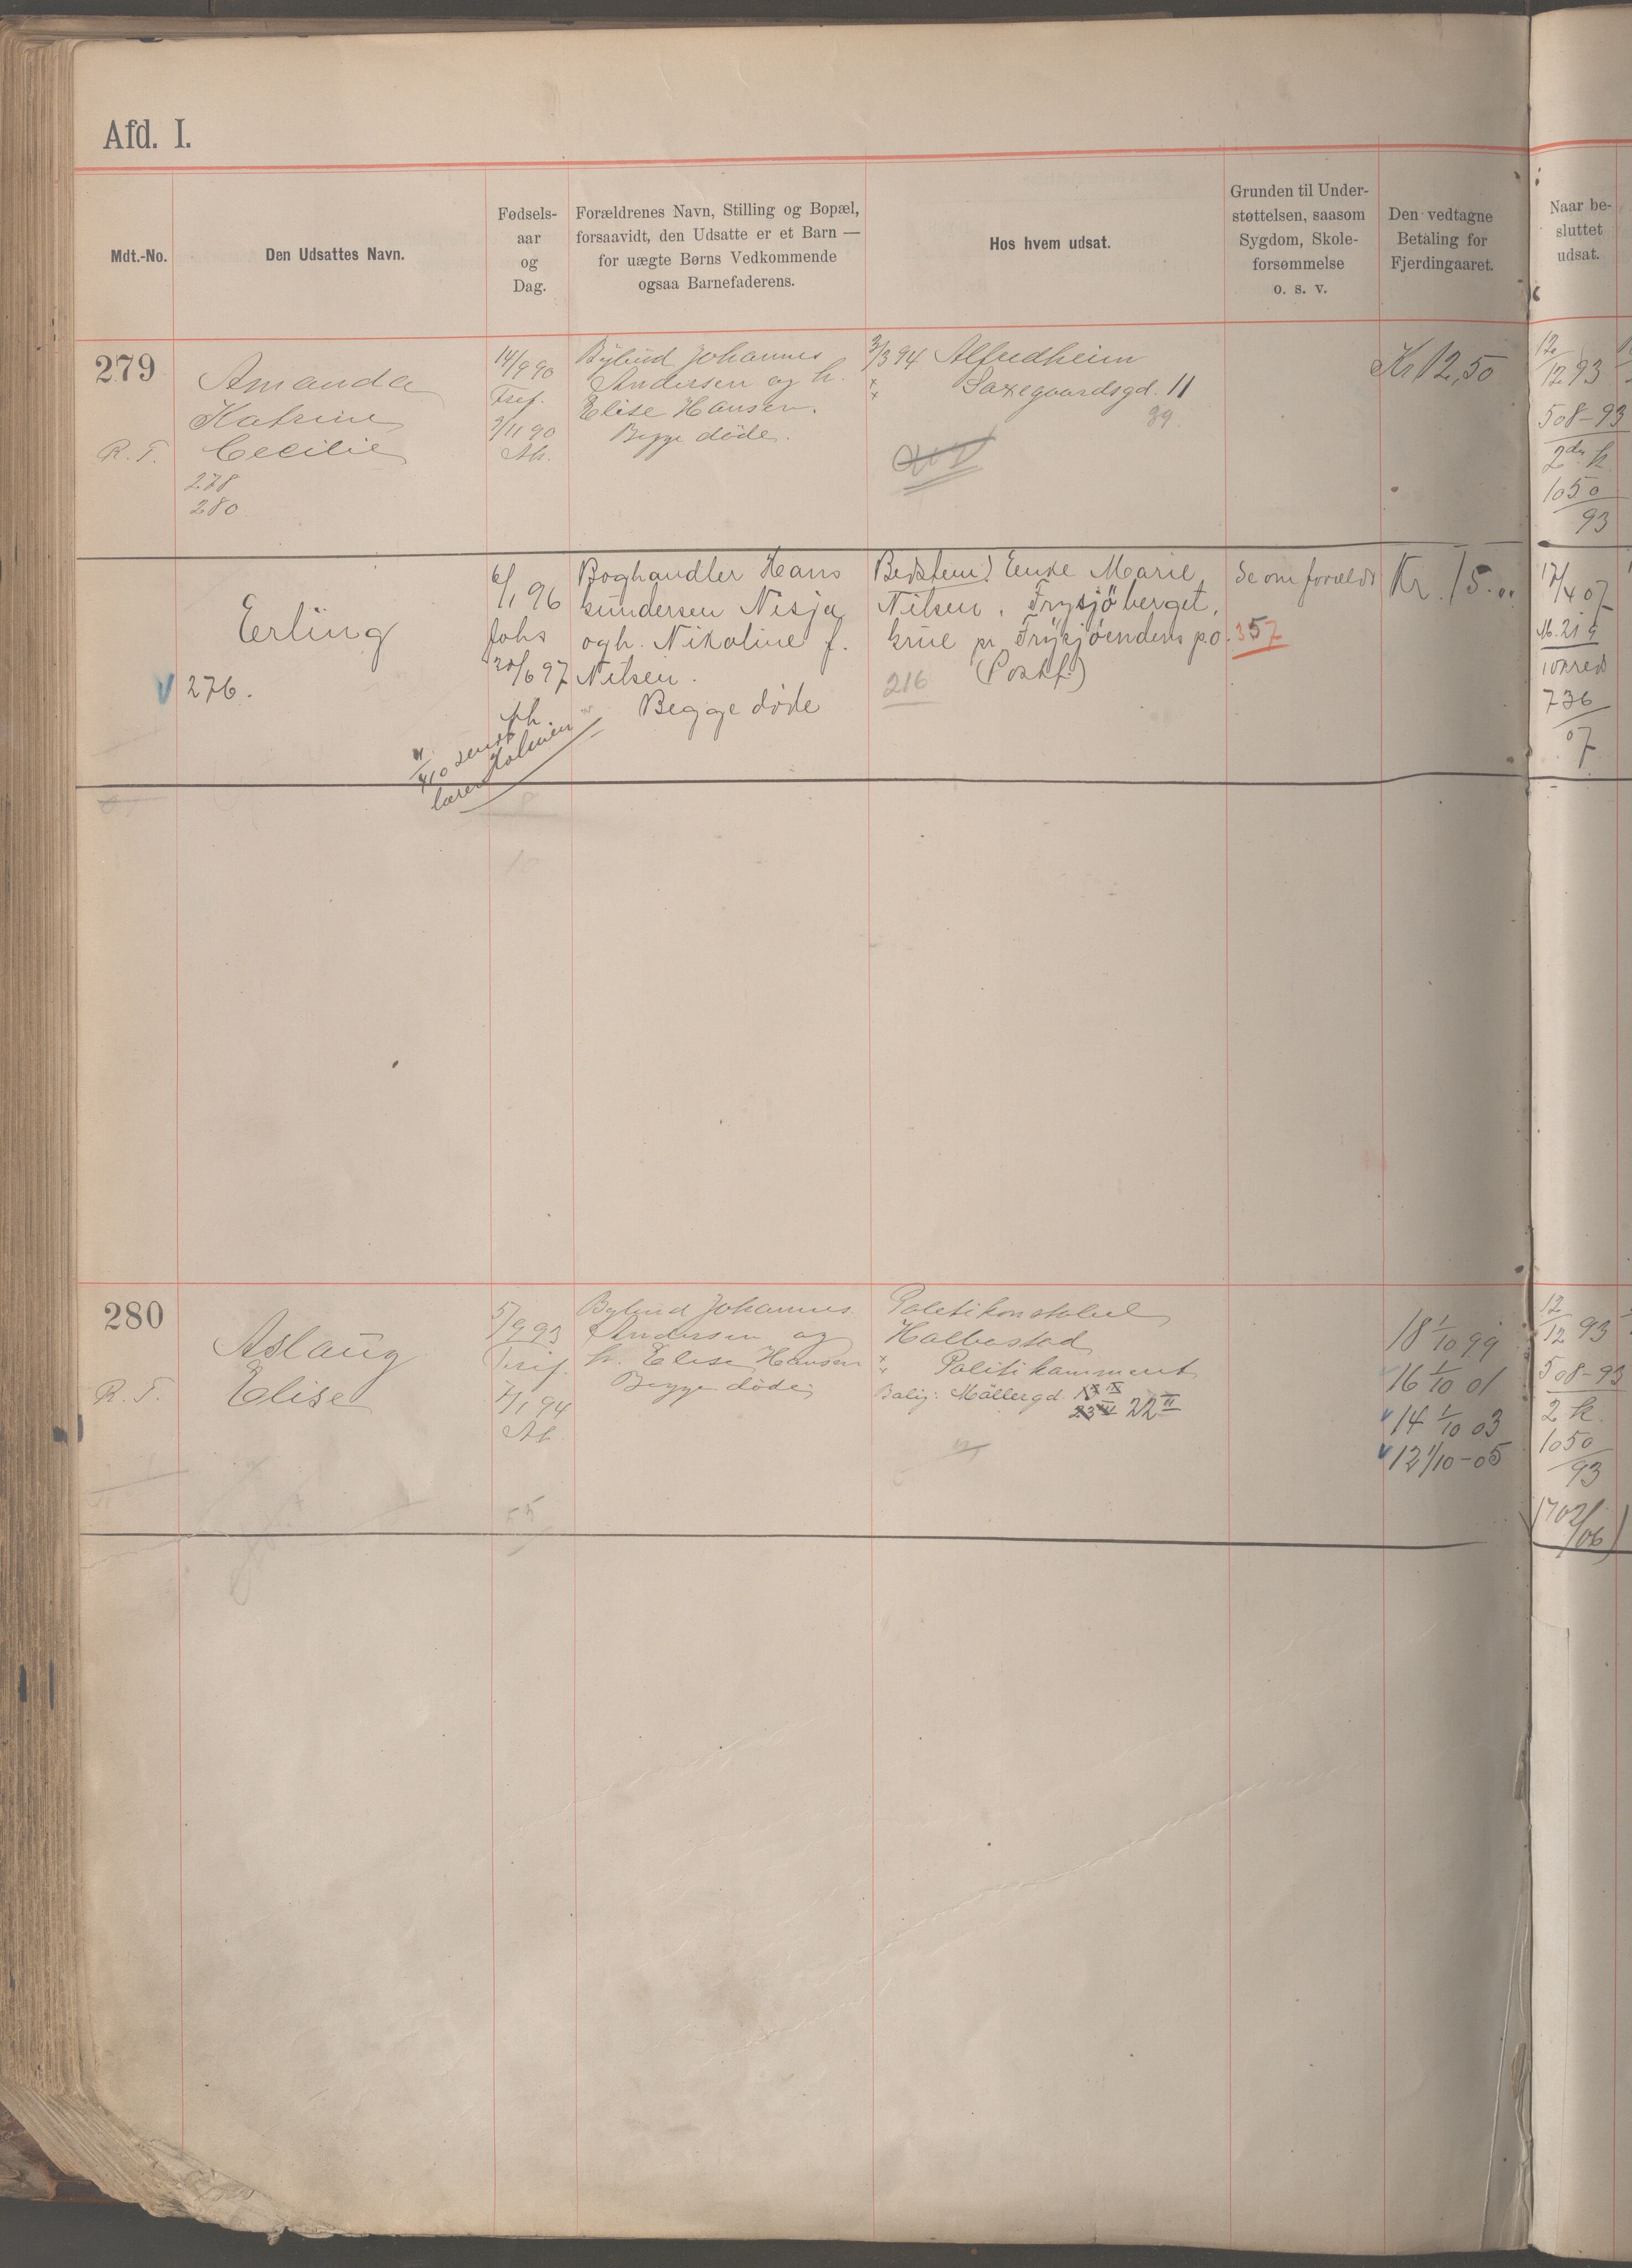 Afd. I.
Mdt.-No.
Den Udsattes Navn.
Fødsels-
aar
og
Dag.
Forældrenes Navn, Stilling og Bopæl,
forsaavidt, den Udsatte er et Barn —
for uægte Børns Vedkommende
ogsaa Barnefaderens.
Hos hvem udsat.
Grunden til Under-
støttelsen, saasom
Sygdom, Skole-
forsømmelse
o. s. v.
Den vedtagne
Betaling for
Fjerdingaaret.
Naar be-
sluttet
udsat.
279
R. T.
Amanda
Katrine
Cecilie
278
280
14/9 90
Tref.
2/11 90
Ak.
Bybud Johannes
Andersen og h.
Elise Hansen.
Begge døde.
2/3 94 Alfredheim
Saxegaardsgd. 11
39.
Kr 12,50
12/12 93
508-93
2den k
1050
93
276.
Erling
6/1 96
Johs
20/6 97
Boghandler Hans
Gundersen Nisja
og h. Nikoline f.
Nilsen.
Begge døde
Enke Marie
Nilsen, Frysjöberget,
Grue pr. Frysjøendens p.o.
(Postf.)
216
Se om foreldr
357
Kr. 15.
17/4 07
M. 219
10kred
736
07
280
R. T.
Aslaug
Elise
5/9 93
Tref.
7/1 94
Ak.
Bybud Johannes
Andersen og
h. Elise Hansen
Begge døde
Politikonstabel
Halbostad
Politikammeret
Bolig: Möllergd. 22 II
18 1/10 99
16 1/10 01
14 1/10 03
12 1/10-05
12/12 93
508-93
2 k.
1050
93
(702/06)